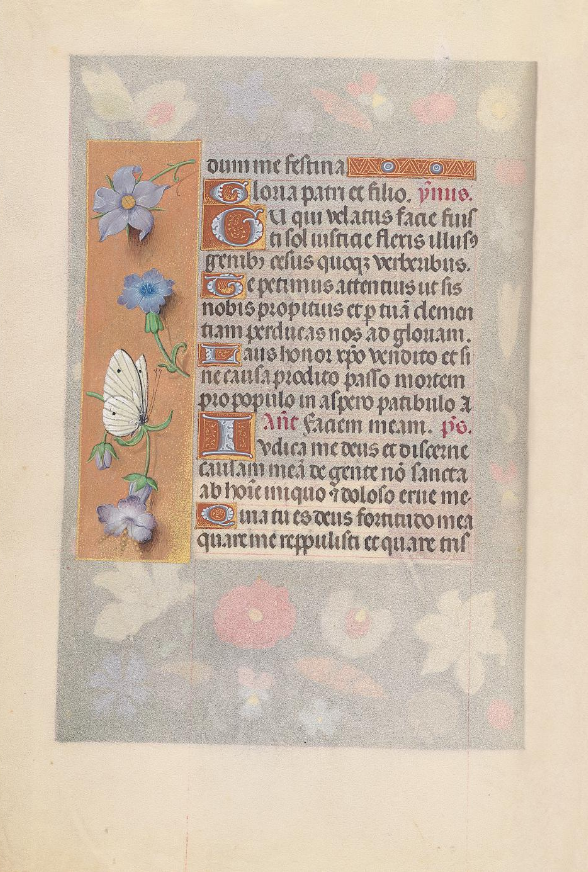 dum me festina
Gloria patri et filio. ymus.
Tu qui velatus facie fuis
ti sol iusticie flexis illusꝰ
genibꝫ cesus quoqꝫ verberibus.
Te petimus attentius ut sis
nobis propitius et ꝑ tuā clemen
tiam perducas nos ad gloriam.
Laus honor xp̄o vendito et si
ne causa prodito passo mortem
pro populo in aspero patibulo A
Añe Faciem meam. p̄s.
Iudica me deus et discerne
causam meā de gente nō sancta
ab hoīe iniquo ⁊ doloso erue me
Quia tu es deus fortitudo mea
quare me reppulisti et quare tris